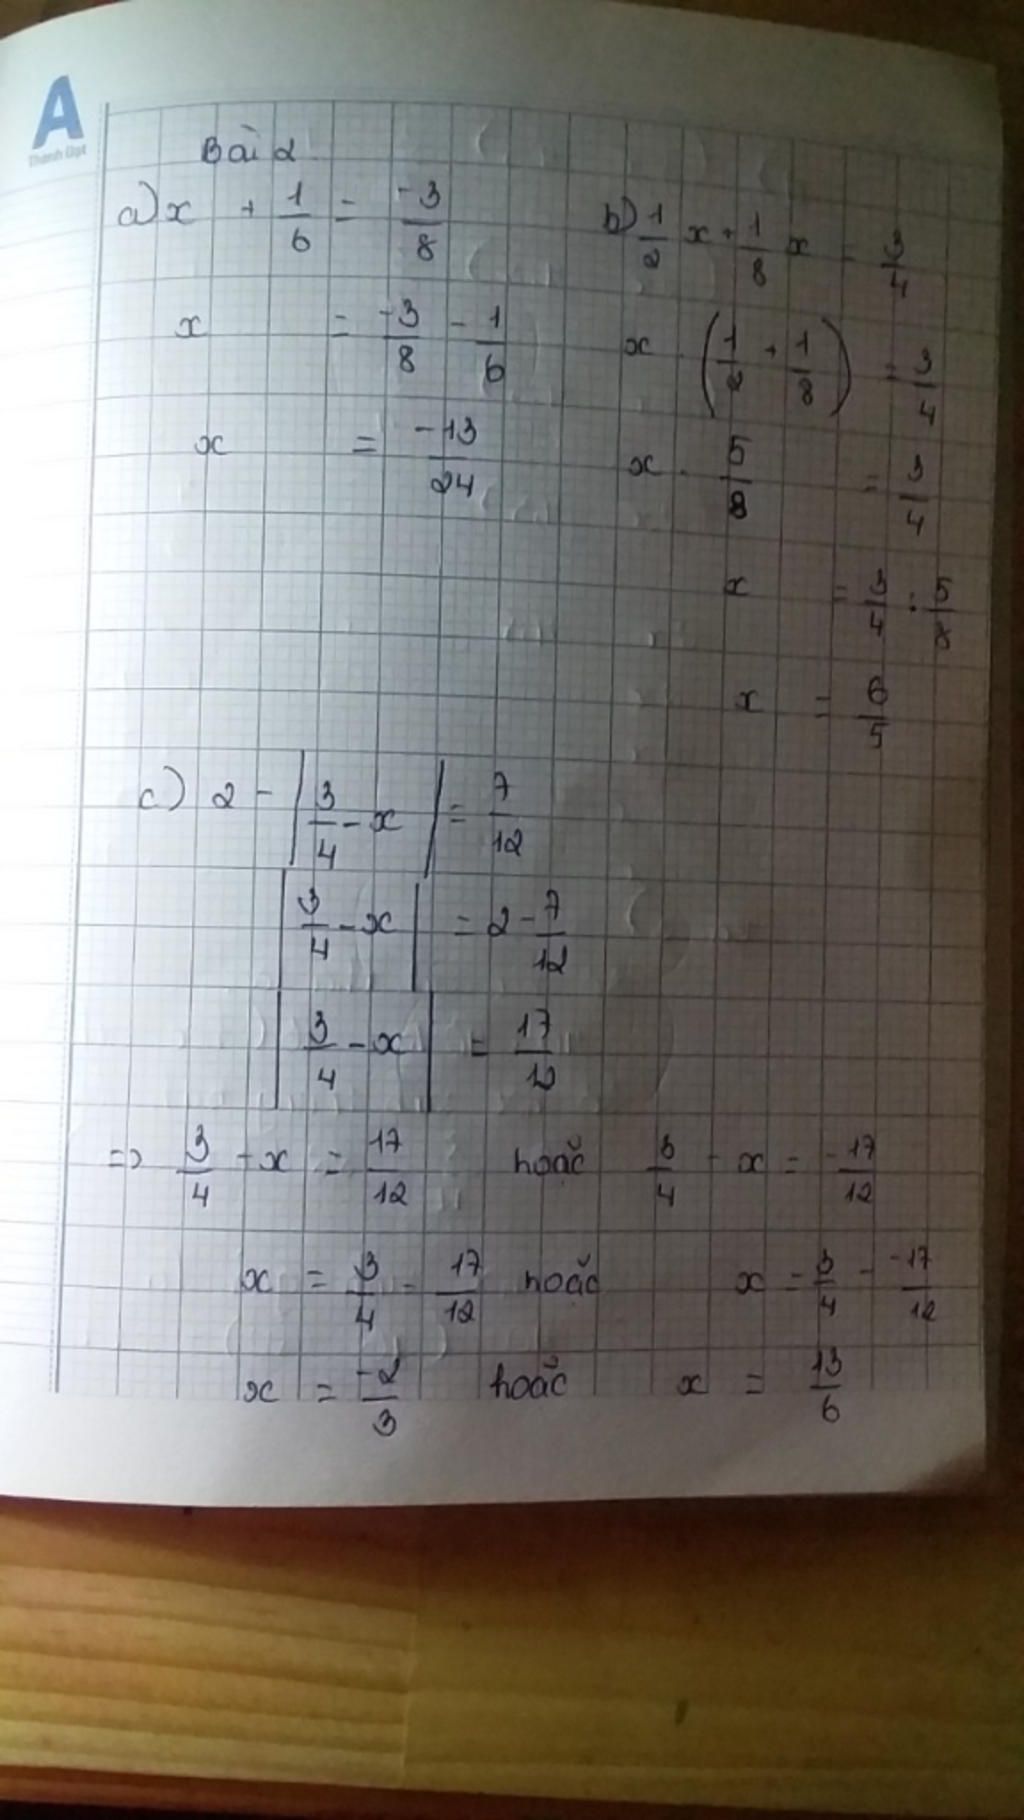 A
Thành Đạt
Bài 2
a) x + 1/6 = -3/8
x = -3/8 - 1/6
x = -13/24
b) 1/2 x + 1/8 x = 3/4
x . (1/2 + 1/8) = 3/4
x . 5/8 = 3/4
x = 3/4 : 5/8
x = 6/5
c) 2 - |3/4 - x| = 7/12
|3/4 - x| = 2 - 7/12
|3/4 - x| = 17/12
=> 3/4 - x = 17/12 hoặc 3/4 - x = -17/12
x = 3/4 - 17/12 hoặc x = 3/4 - -17/12
x = -2/3 hoặc x = 13/6